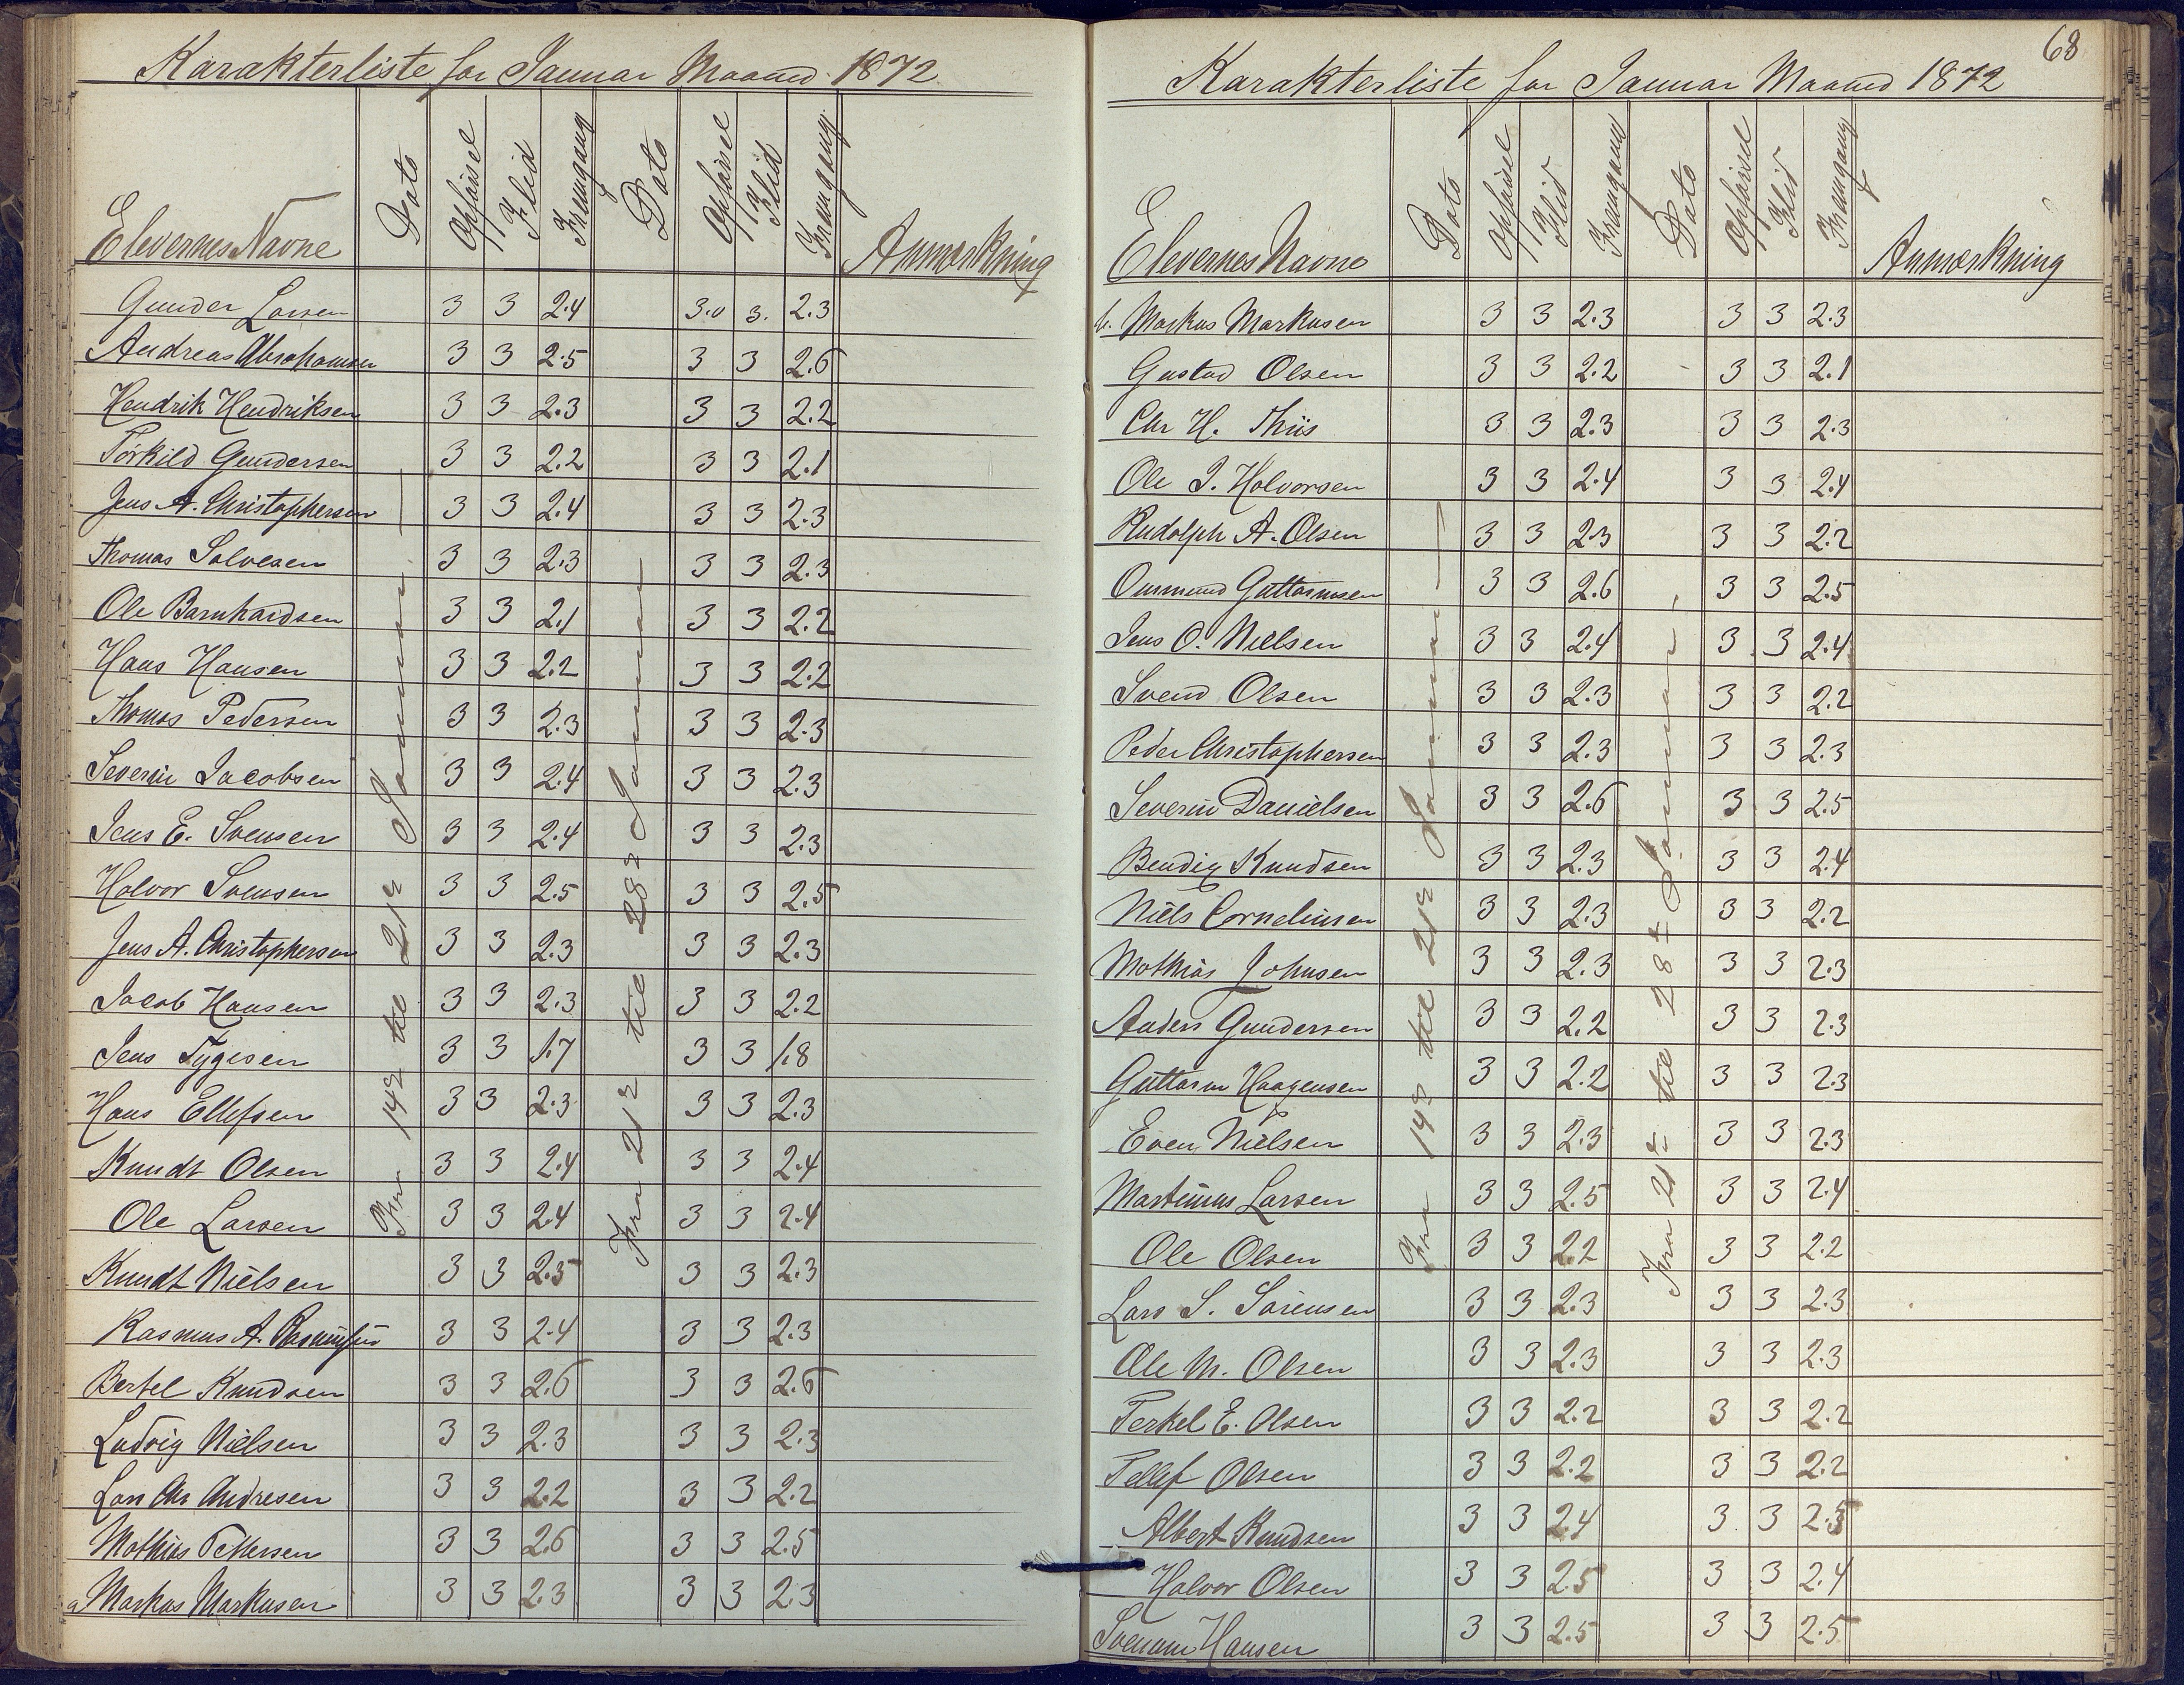 Karakterliste for Januar Maaned 1872
Elevernes Navne Dato Opførsel Flid Fremgang Dato Opførsel Flid Fremgang Anmærkning
Fra 14de til 21de Januar
Fra 21de til 28de Januar
Gunder Larsen 3 3 2.4 3.0 3. 2.3
Andreas Abrahamsen 3 3 2.5 3 3 2.6
Hendrik Hendriksen 3 3 2.3 3 3 2.2
Torkild Gundersen 3 3 2.2 3 3 2.1
Jens A. Christophersen 3 3 2.4 3 3 2.3
Thomas Salvesen 3 3 2.3 3 3 2.3
Ole Barnhardsen 3 3 2.1 3 3 2.2
Hans Hansen 3 3 2.2 3 3 2.2
Thomas Pedersen 3 3 2.3 3 3 2.3
Severin Jacobsen 3 3 2.4 3 3 2.3
Jens E. Svensen 3 3 2.4 3 3 2.3
Halvor Svensen 3 3 2.5 3 3 2.5
Jens A. Christophersen 3 3 2.3 3 3 2.3
Jacob Hansen 3 3 2.3 3 3 2.2
Jens Tygesen 3 3 1.7 3 3 1.8
Hans Ellefsen 3 3 2.3 3 3 2.3
Knudt Olsen 3 3 2.4 3 3 2.4
Ole Larsen 3 3 2.4 3 3 2.4
Knudt Nielsen 3 3 2.5 3 3 2.3
Rasmus A. 3 3 2.4 3 3 2.3
Bertel Knudsen 3 3 2.6 3 3 2.6
Ludvig Nielsen 3 3 2.3 3 3 2.3
Lars Chr Andresen 3 3 2.2 3 3 2.2
Mathias Pettersen 3 3 2.6 3 3 2.5
a Markus Markusen 3 3 2.3 3 3 2.3
68
Karakterliste for Januar Maaned 1872
Elevernes Navne Dato Opførsel Flid Fremgang Dato Opførsel Flid Fremgang Anmærkning
Fra 14de til 21de Januar
Fra 21de til 28de Januar
b. Markus Markusen 3 3 2.3 3 3 2.3
Gustad Olsen 3 3 2.2 3 3 2.1
Chr H. Thiis 3 3 2.3 3 3 2.3
Ole J. Halvorsen 3 3 2.4 3 3 2.4
Rudolph A. Olsen 3 3 2.3 3 3 2.2
Ommund Guttormsen 3 3 2.6 3 3 2.5
Jens O. Nielsen 3 3 2.4 3 3 2.4
Svend Olsen 3 3 2.3 3 3 2.2
Peder Christophersen 3 3 2.3 3 3 2.3
Severin Danielsen 3 3 2.6 3 3 2.5
Bendix Knudsen 3 3 2.3 3 3 2.4
Niels Corneliusen 3 3 2.3 3 3 2.2
Mathias Johnsen 3 3 2.3 3 3 2.3
Anders Gundersen 3 3 2.2 3 3 2.3
Guttorm Haagensen 3 3 2.2 3 3 2.3
Even Nielsen 3 3 2.3 3 3 2.3
Martinius Larsen 3 3 2.5 3 3 2.4
Ole Olsen 3 3 2.2 3 3 2.2
Lars S. Sørensen 3 3 2.3 3 3 2.3
Ole M. Olsen 3 3 2.3 3 3 2.3
Terkel E. Olsen 3 3 2.2 3 3 2.2
Tellef Olsen 3 3 2.2 3 3 2.2
Albert Knudsen 3 3 2.4 3 3 2.5
Halvor Olsen 3 3 2.5 3 3 2.4
Hansen 3 3 2.5 3 3 2.5